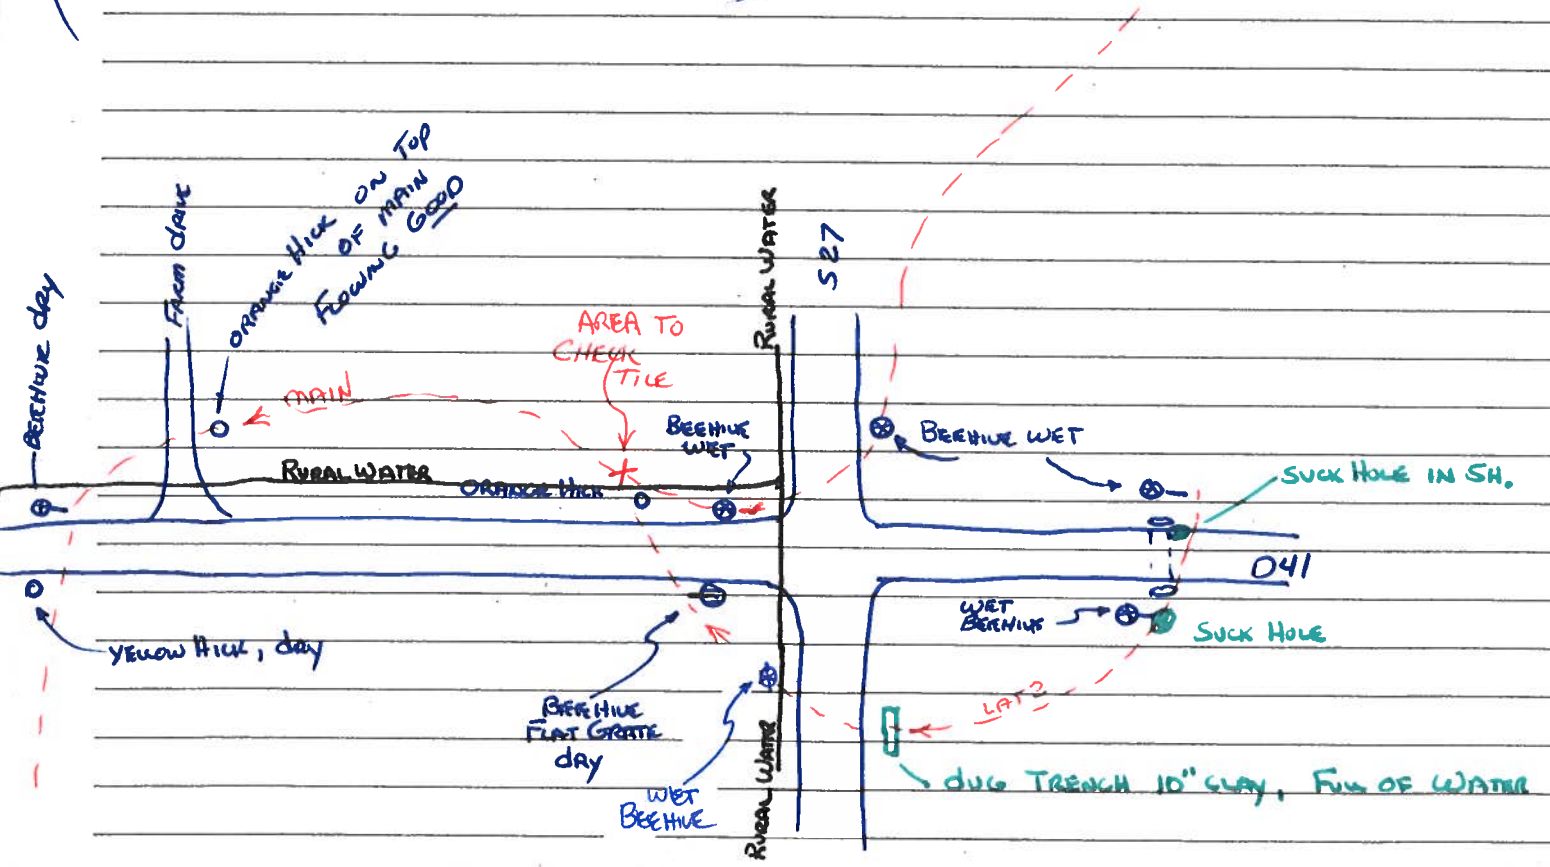 ORANGE HICK ON TOP
OF MAIN
FLOWING GOOD
FARM DRIVE
BEEHIVE dRY
RURAL WATER
S27
AREA TO
CHECK
TILE
MAIN
BEEHIVE
WET
BEEHIVE WET
RURAL WATER
ORANGE HICK
SUCK HOLE IN SH.
D41
WET
BEEHIVE
SUCK HOLE
YELLOW HICK, dRY
LAT 2
BEEHIVE
FLAT GRATE
dRY
WET
BEEHIVE
RURAL WATER
dUG TRENCH 10" CLAY, FULL OF WATER